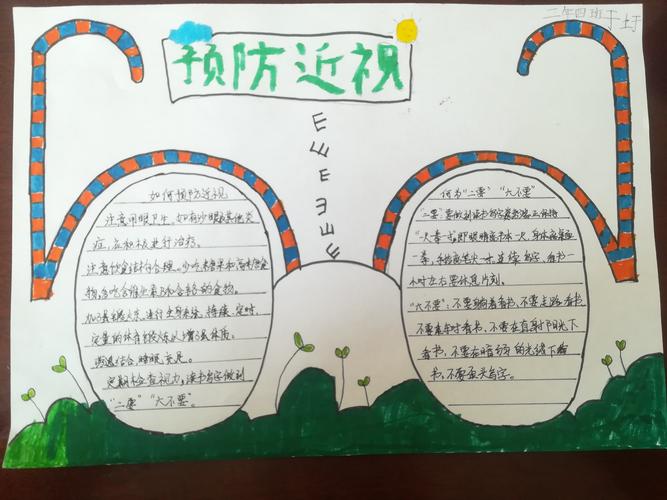 二年四班于圩
预防近视
E E E E E E
如何预防近视
注意用眼卫生,如有沙眼或其他炎
症,应积极进行治疗。
注意饮食结构合理。少吃糖果和高糖食
物,多吃含维生素和含铬的食物。
加强户外,进行全身系统,持续,定时,
定量的体育锻炼以增强体质。
劳逸结合,睡眠充足。
定期检查视力,读书写字做到
"二要" "六不要"。
何为"二要" "六不要"
"二要":要做到读书写字姿势端正保持
"一尺一拳一寸"即眼睛离书本一尺,身体离桌
一拳,手指离笔尖一寸。连续写字、看书一
小时左右要休息片刻。
"六不要":不要躺着看书、不要走路看书、
不要乘车时看书、不要在直射阳光下
看书、不要在暗弱的光线下看
书、不要歪头写字。